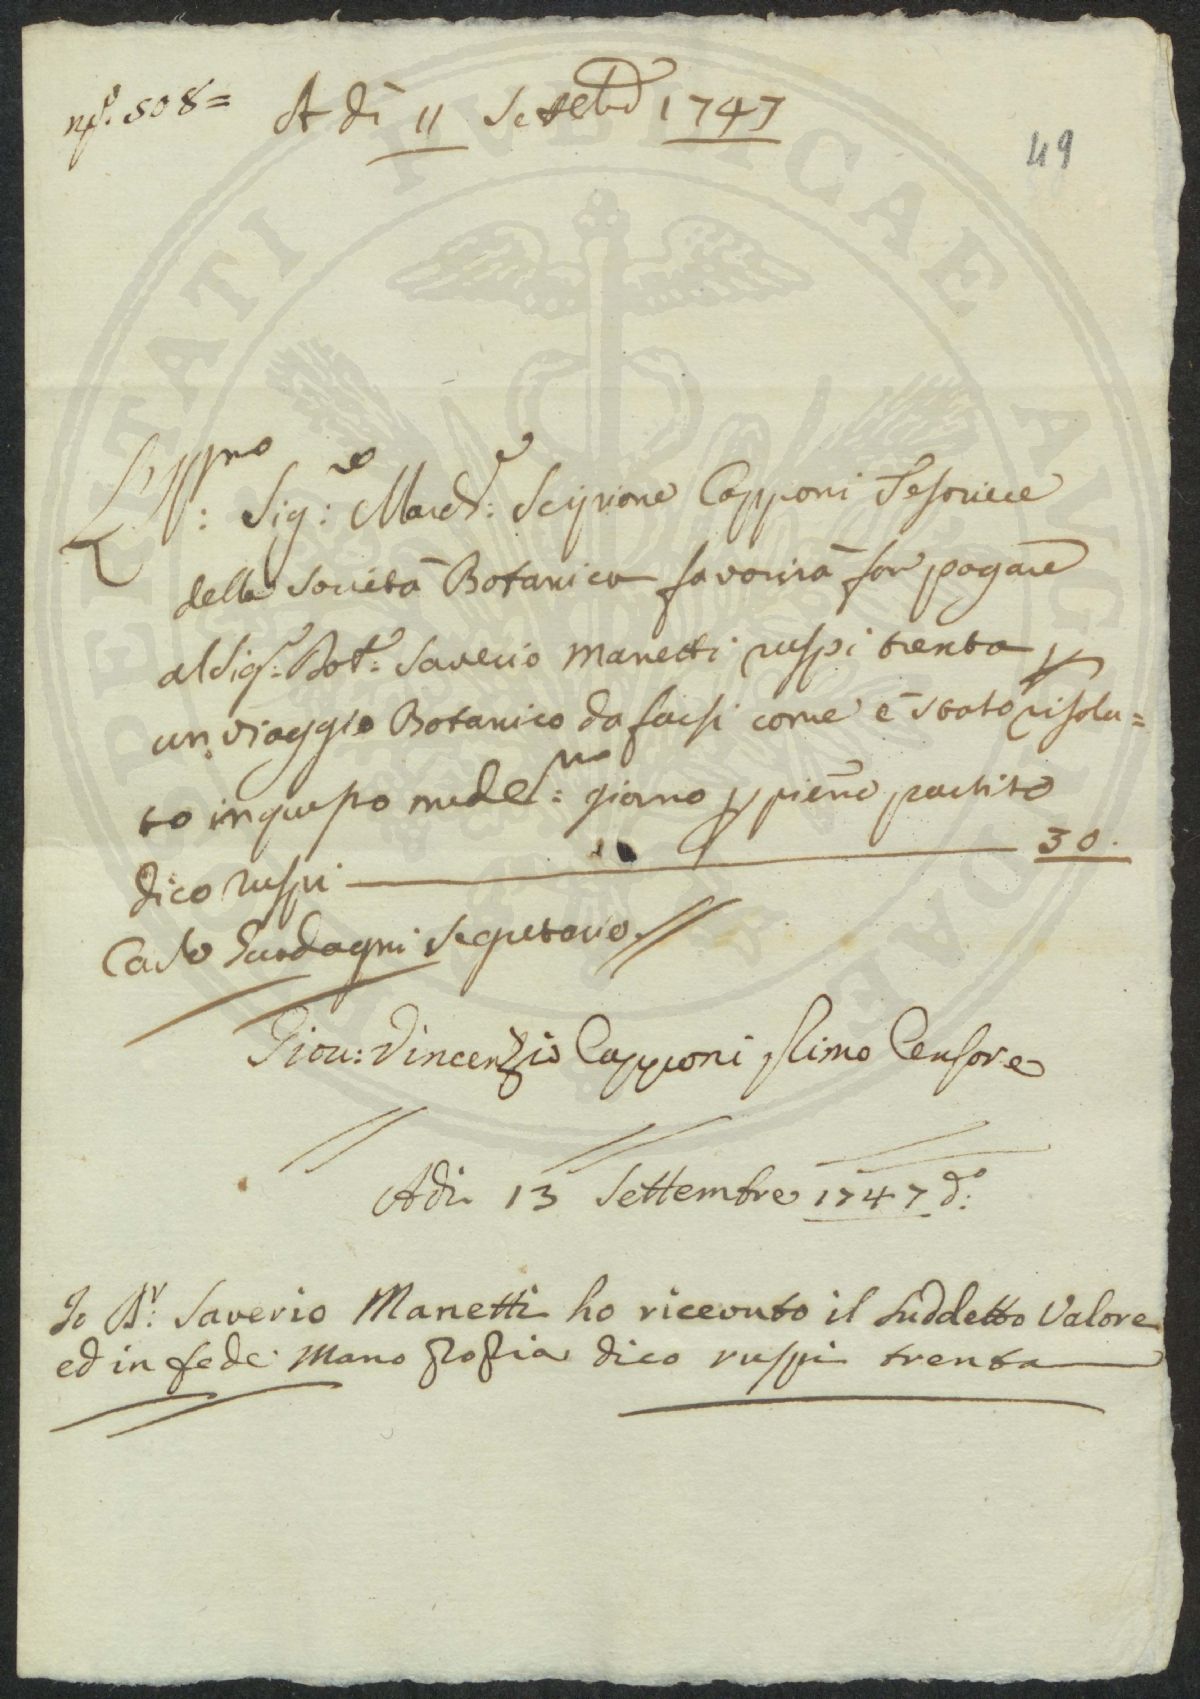 nº. 508=
A dì 11 Settebre 1747
49
Sig.re March.e: Scipione Capponi Tesoriere
della Società Botanica favorirà far pagare
al Sig.r Dot.r: Saverio Manetti ruspi trenta p
un viaggio Botanico da farsi come è stato risolu=
to in questo mede.mo: giorno p pieno partito
dico ruspi 30.
Carlo Guadagni Segretario
Giov: Vincenzio Capponi Censore
Adi 13 Settembre 1747 d.o
Io D.r: Saverio Manetti ho ricevuto il suddetto Valore
ed in fede Mano propria dico ruspi trenta
PIETATI PVBLICAE AVG